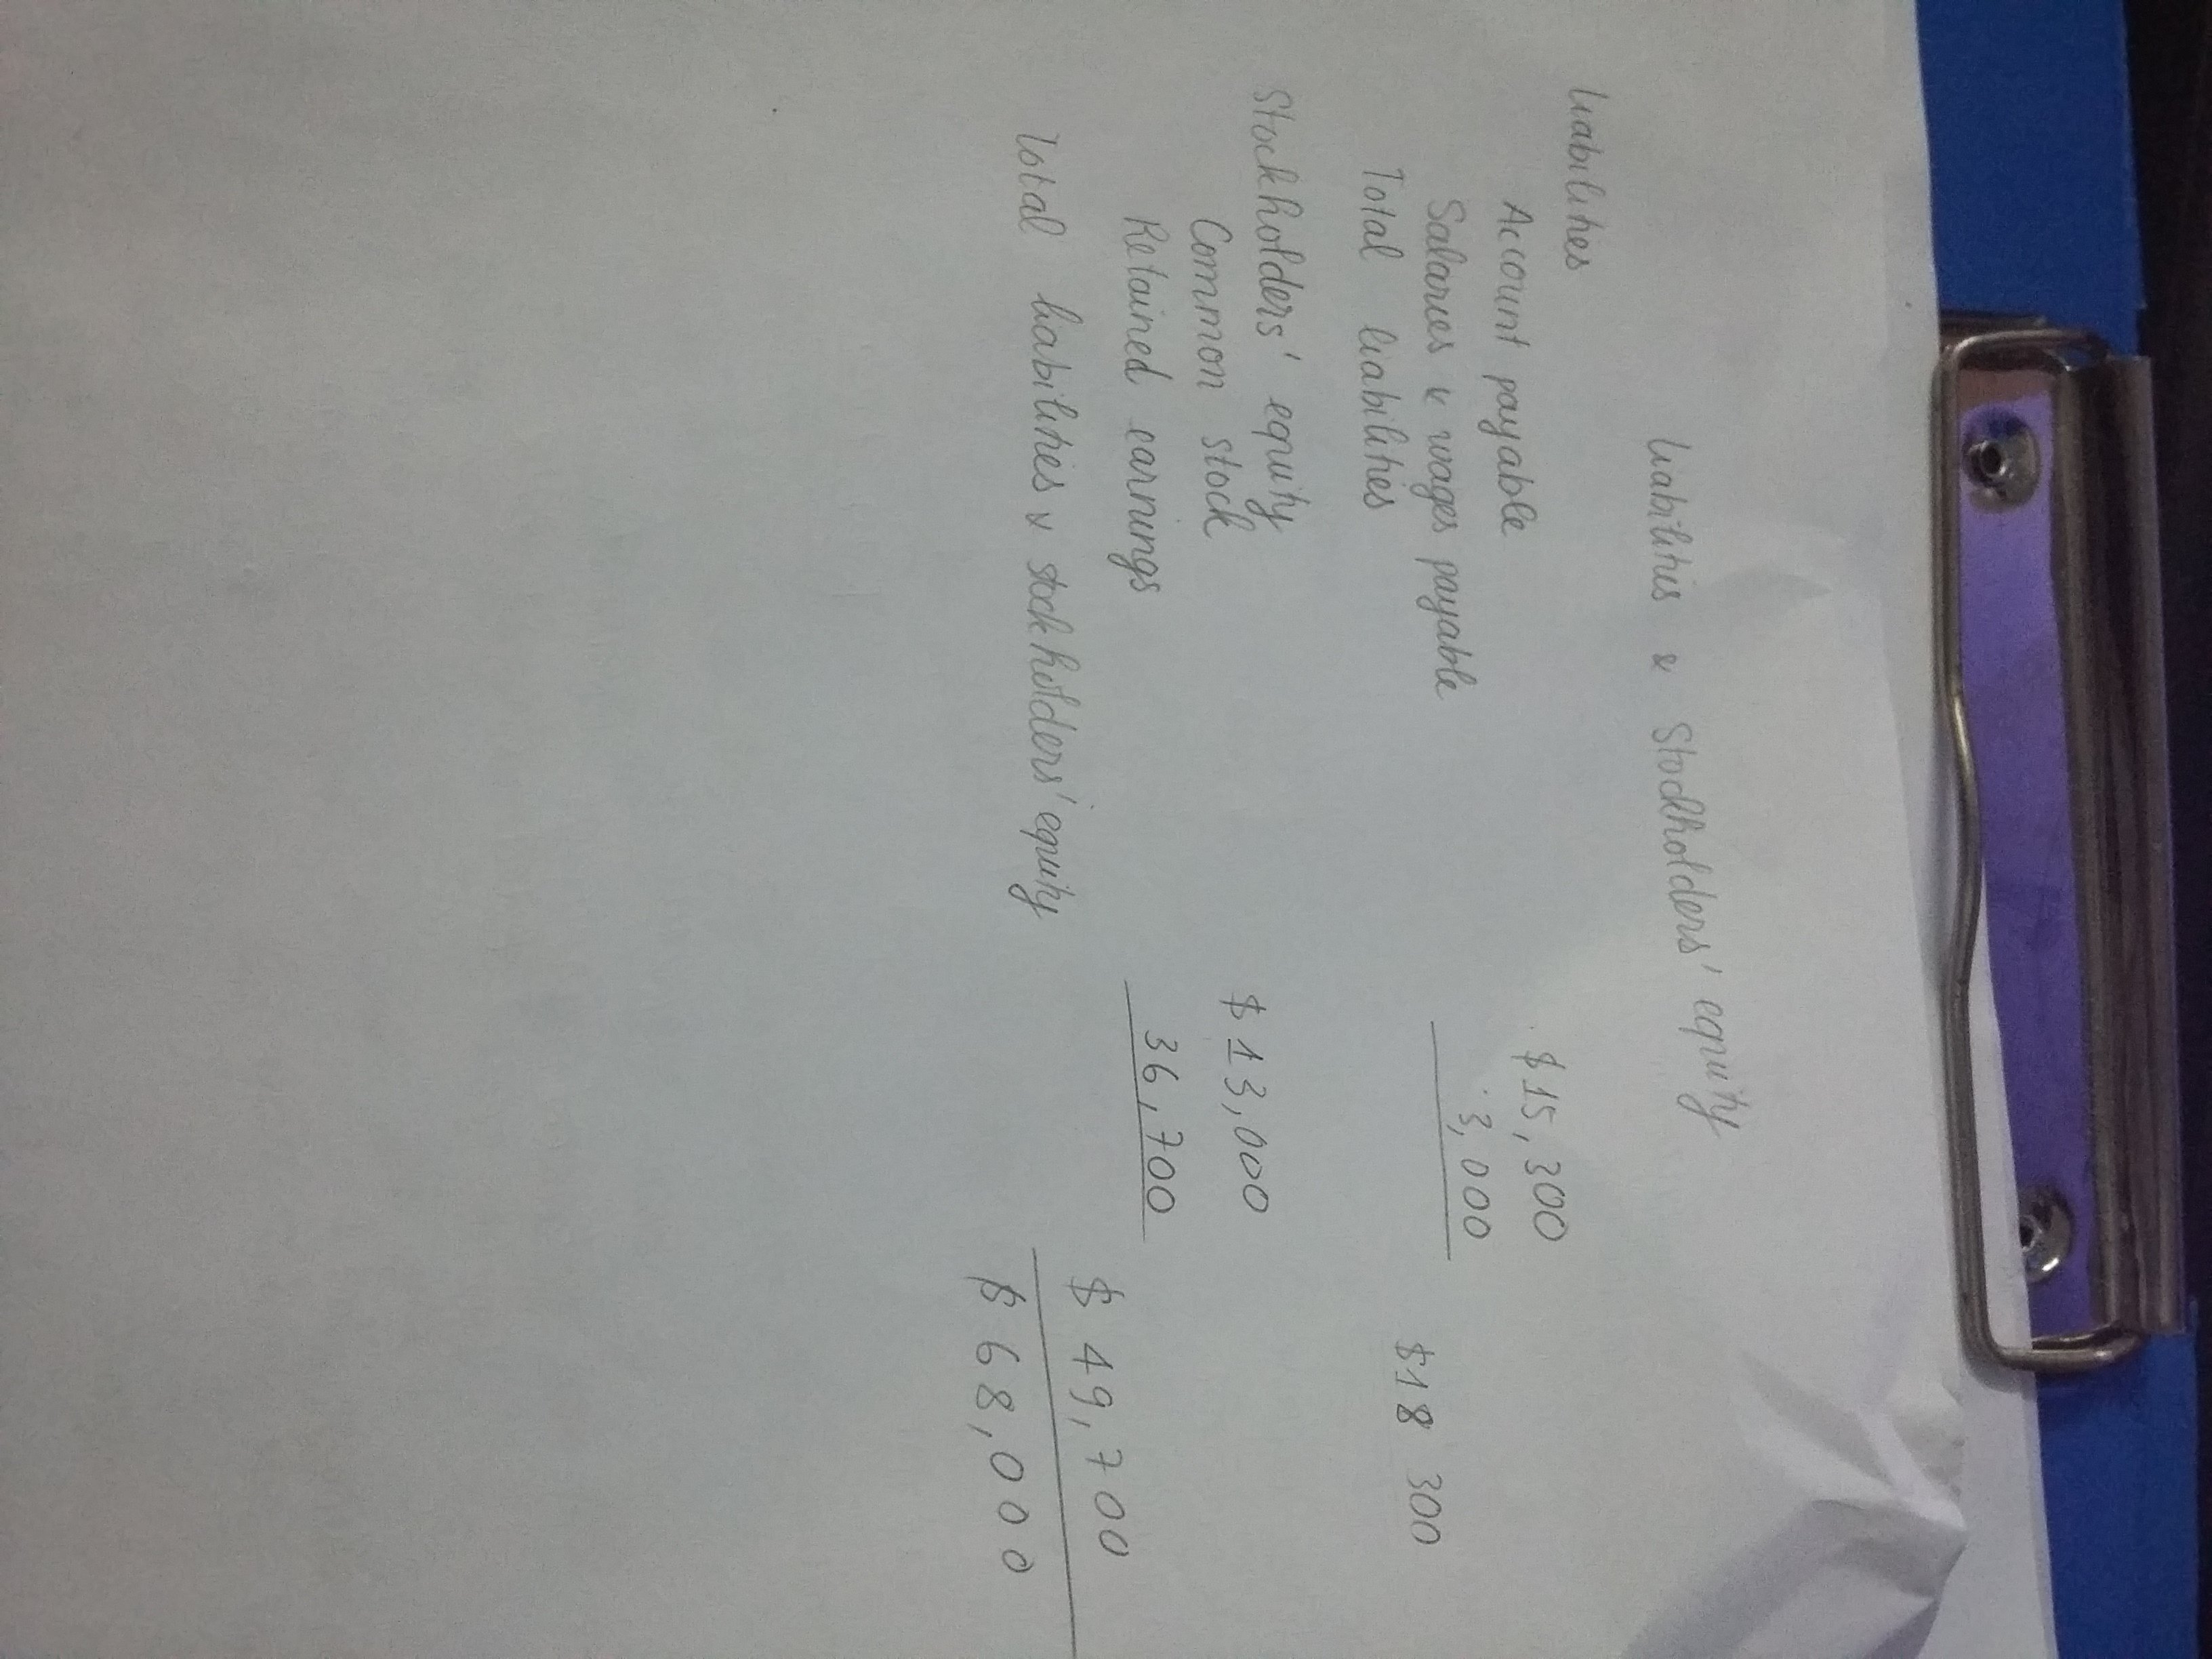 Liabilities & Stockholders' equity
Liabilities
Account payable $15,300
Salaries & wages payable 3,000
Total liabilities $18 300
Stockholders' equity
Common stock $13,000
Retained earnings 36,700
$ 49,700
Total liabilities & stockholders' equity $ 68,000